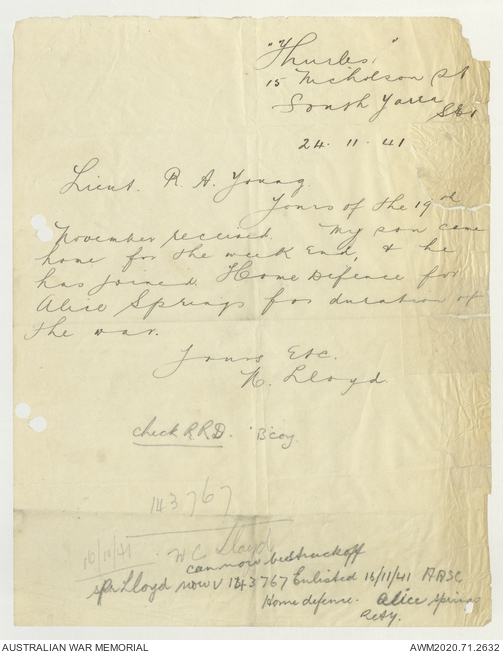 "Thurles,"
15 Nicholson St
South Yarra
SE1
24. 11. 41
Lieut. R. A. Young.
Yours of the 19th
November received. My son came
home for the week End, & he
has joined Home Defence for
Alice Springs for duration of
the war.
Yours Etc.
N. Lloyd.
check R.R.D. 'B' coy.
143767
16/10/41 W C Lloyd
can now be struck off
spr. Lloyd now V 143767 Enlisted 16/11/41 AASC
Home defense. Alice Springs
AUSTRALIAN WAR MEMORIAL
AWM2020.71.2632